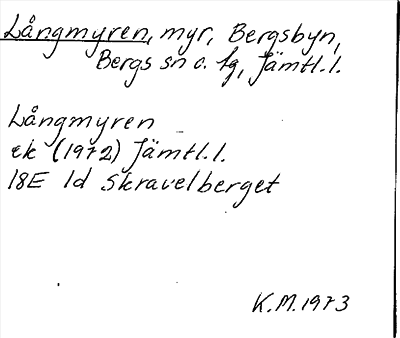 Långmyren, myr, Bergsbyn,
Bergs sn o. fg, Jämtl. l.
Långmyren
ek (1972) Jämtl. l.
18E 1d Skravelberget
K.M. 1973